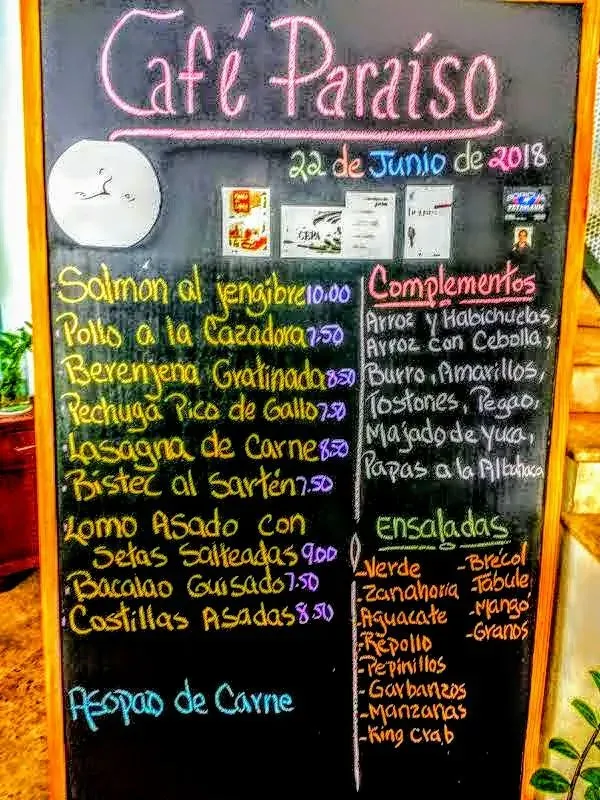 Café Paraíso
22 de Junio de 2018
CEPA
Salmon al yengibre 10.00
Pollo a la Cazadora 7.50
Berenjena Gratinada 8.50
Pechuga Pico de Gallo 7.50
Lasagna de Carne 8.50
Bistec al Sartén 7.50
Lomo Asado con
Setas Salteadas 9.00
Bacalao Guisado 7.50
Costillas Asadas 8.50
Asopao de Carne
Complementos
Arroz y Habichuelas,
Arroz con Cebolla,
Burro, Amarillos,
Tostones, Pegao,
Majado de Yuca,
Papas a la Albahaca
Ensaladas
-Verde
-Zanahoria
-Aguacate
-Repollo
-Pepinillos
-Garbanzos
-Manzanas
-King Crab
-Brécol
-Tabule
-Mangó
-Granos